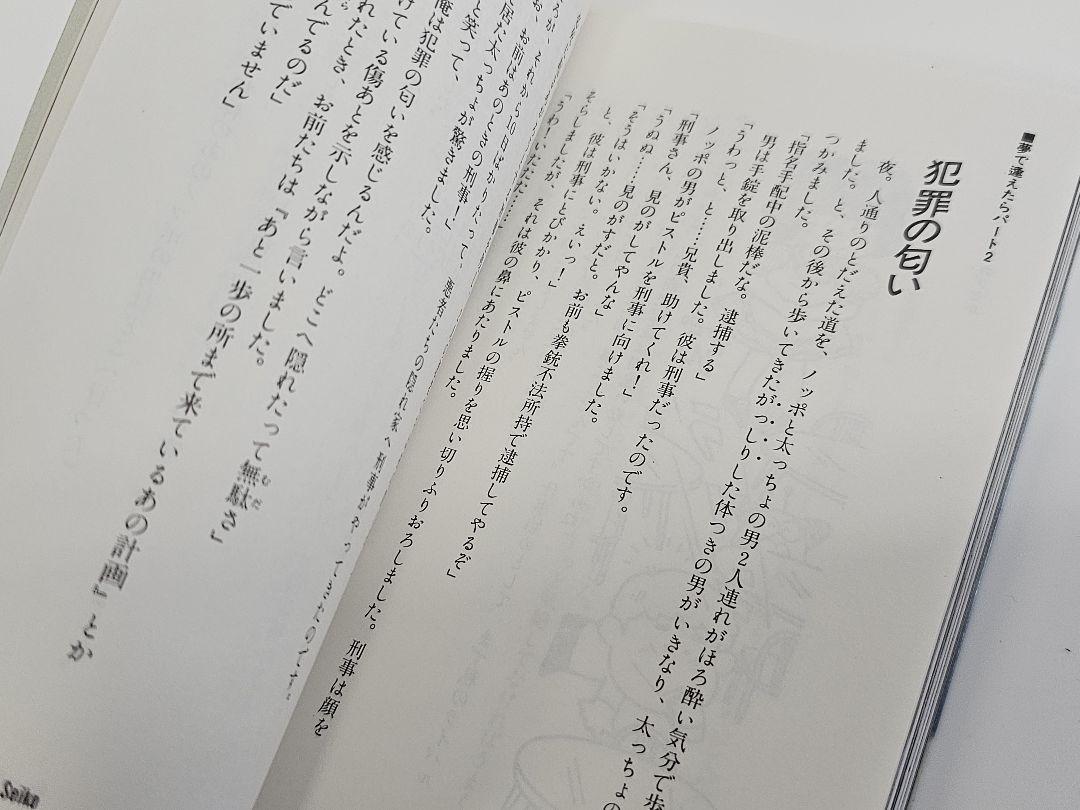 ■夢で逢えたらパート2
犯罪の匂い
夜。人通りのとだえた道を、ノッポと太っちょの男2人連れがほろ酔い気分で歩
ました。と、その後から歩いてきたがっしりした体つきの男がいきなり、太っちょの
つかみました。
「指名手配中の泥棒だな。逮捕する」
男は手錠を取り出しました。彼は刑事だったのです。
「うわっと、と……兄貴、助けてくれ！」
ノッポの男がピストルを刑事に向けました。
「刑事さん、見のがしてやんな」
「うぬぬ……見のがすだと。お前も拳銃不法所持で逮捕してやるぞ」
「そうはいかない。えいっ！」
と、彼は刑事にとびかかり、ピストルの握りを思い切りふりおろしました。刑事は顔を
そらしましたが、それは彼の鼻にあたりました。
「うわ！いたたた……」
ろが、それから10日ばかりたって、悪者たちの隠れ家へ刑事がやってきたのです。
お、お前はあのときの刑事！」
と居た太っちょが驚きました。
と笑って、
俺は犯罪の匂いを感じるんだよ。どこへ隠れたって無駄さ」
けている傷あとを示しながら言いました。
れたとき、お前たちは『あと一歩の所まで来ているあの計画』とか
んでるのだ」
ていません」
Seiko